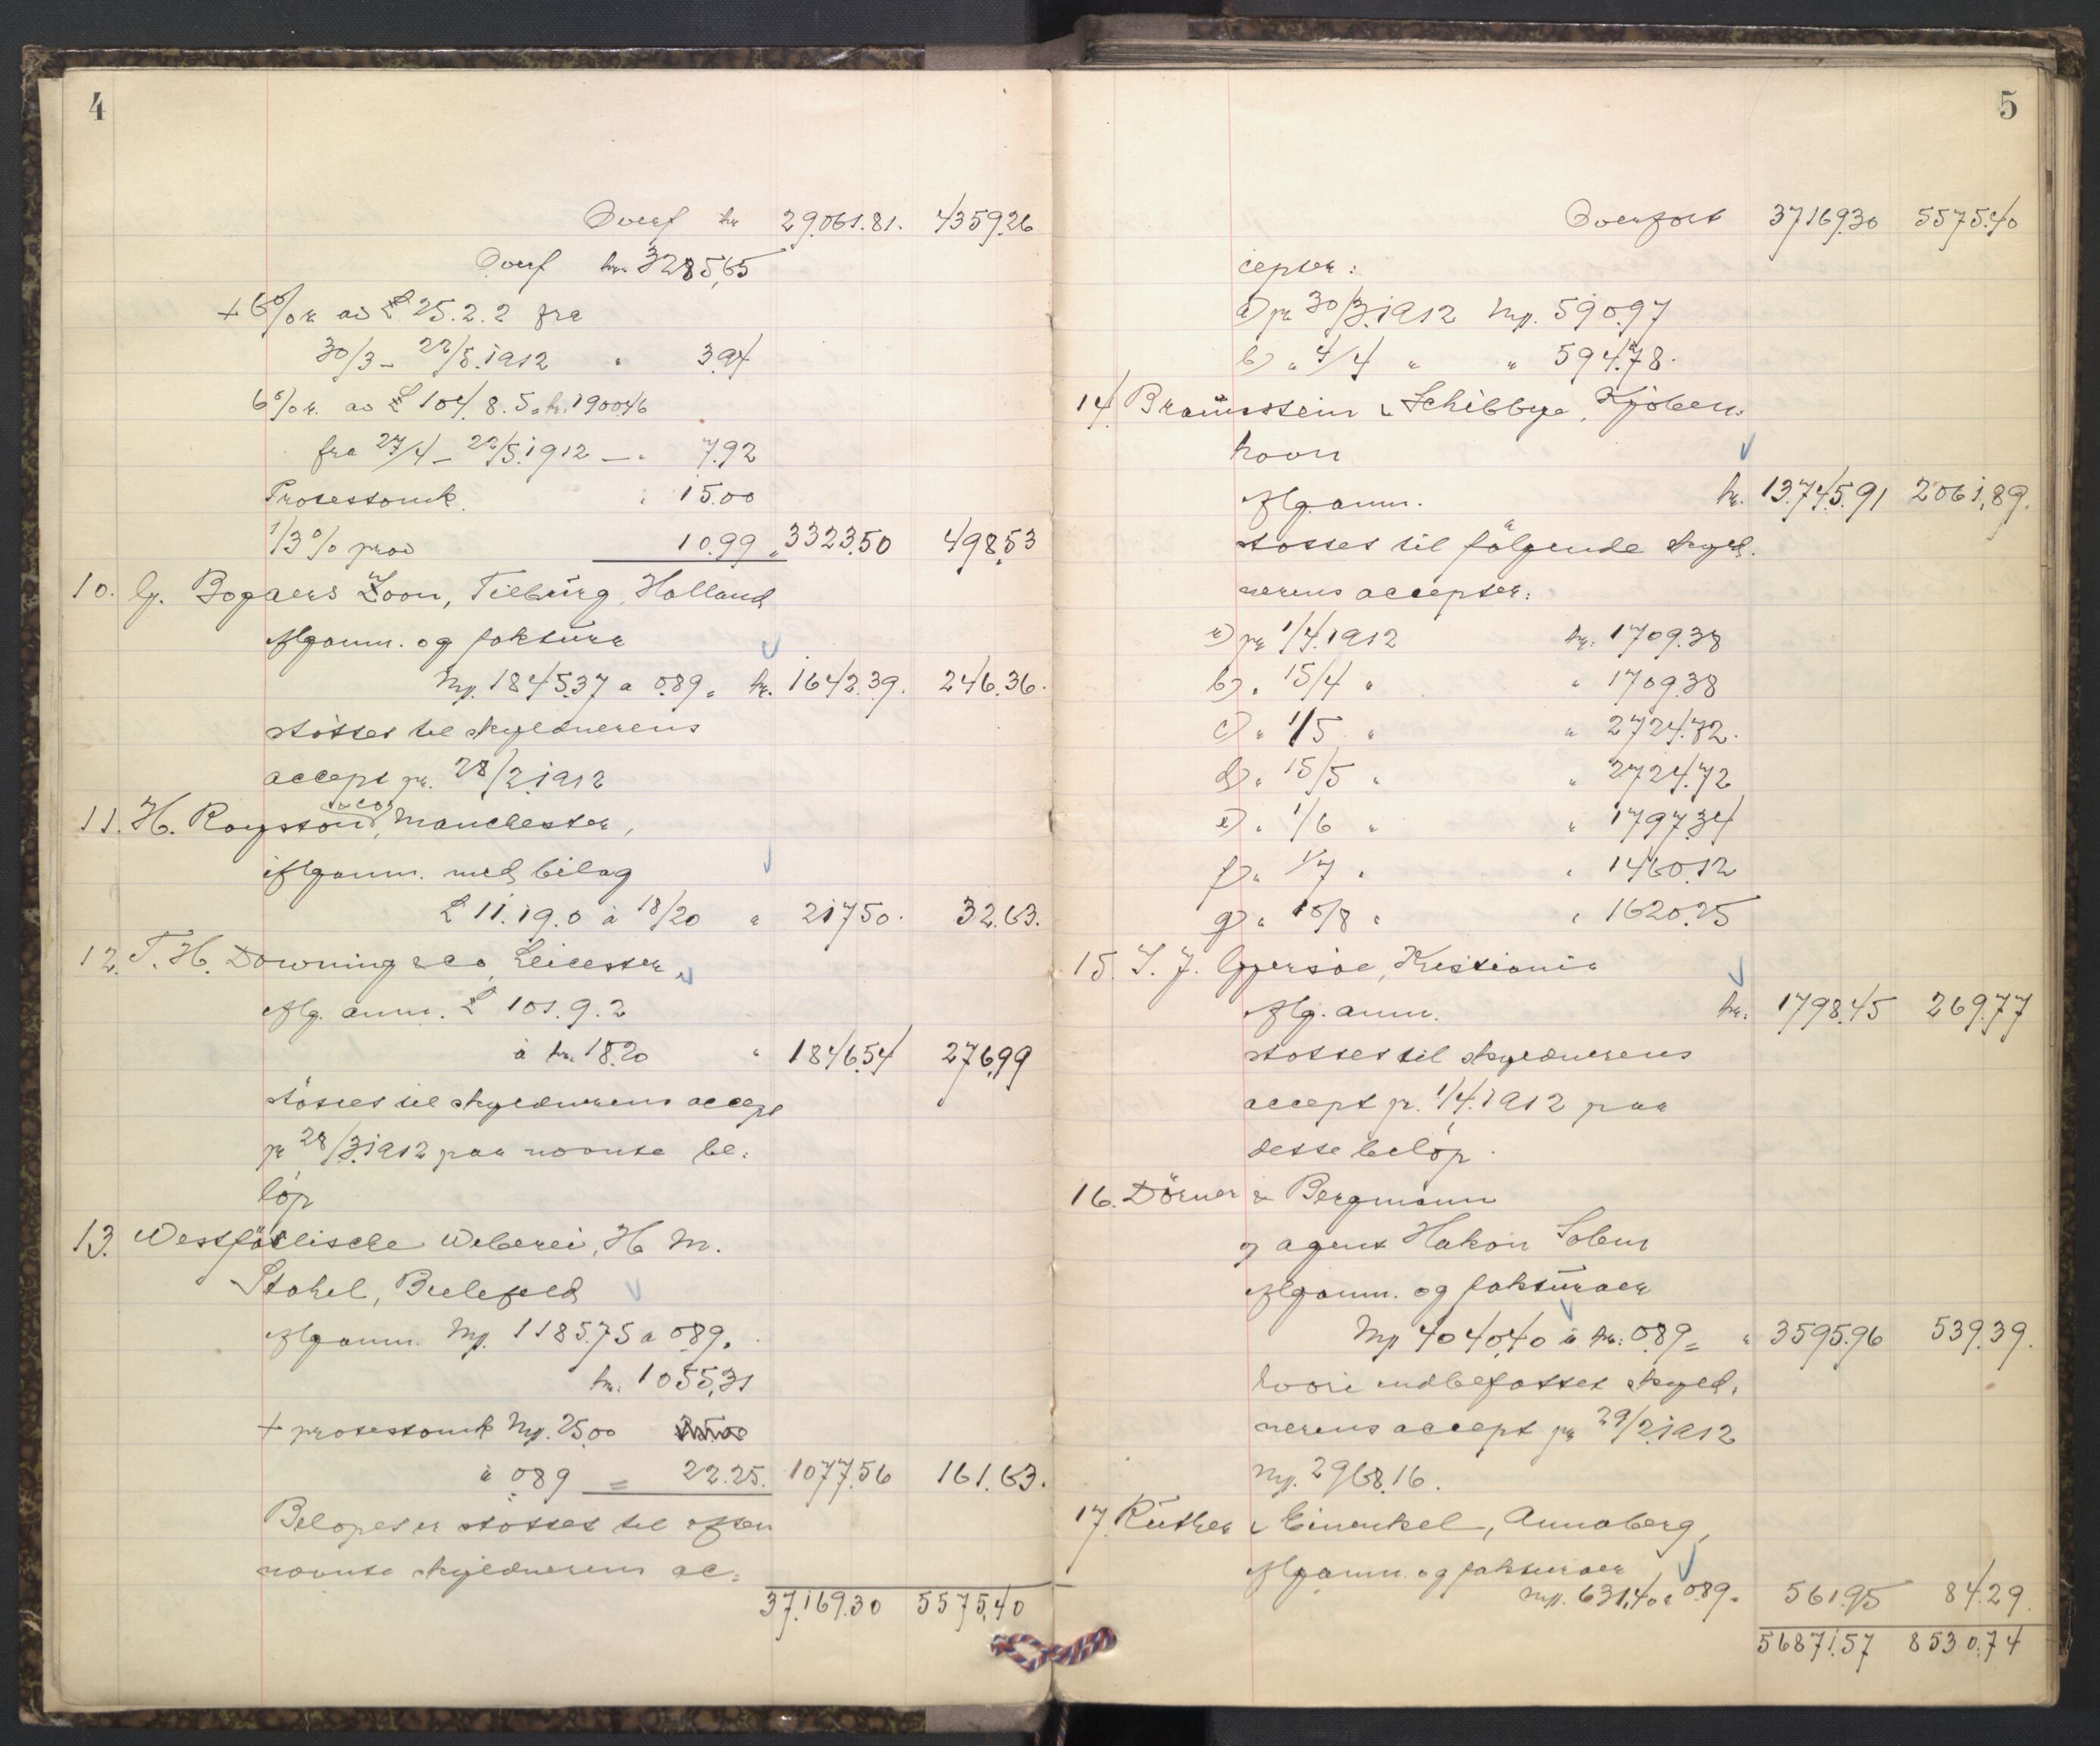 4
Overf kr 29,061.81. 4359.26
Overf kr. 3285,65
+ 6% r. av £ 25.2.2 fra
30/3 - 22/5.1912 " 3.94
6% r. av £ 104.8.5 = kr. 1900.46
fra 27/4 - 22/5.1912 — " 7.92
Protestomk. " 15.00
1/3 % prov 10.99 = 3323.50 498.53
10. G. Bogaers Zoon, Tilburg, Holland
Iflg anm. og faktura
Mk. 1845.37 a 0.89 = kr. 1642.39. 246.36.
støttes til skyldnerens
accept pr. 28/2.1912
11. H. Royston & co, Manchester,
ifølg anm. med bilag
£ 11.19.0 à 18/20 " 217.50. 32.63.
12. T. H. Downing & co, Leicester
Iflg. anm. £ 101.9.2
à kr. 18.20 " 1846.54 276.99
støttes til skyldnerens accept
pr 28/3.1912 paa nævnte be-
løp
13. Westfälische Weberei, H. M.
Stahel, Bielefeld
Iflg anm. Mk. 1185.75 a 0.89.
kr. 1055,31
+ protestomk Mk. 25.00
à 0.89 = 22.25. 1077.56 161.63.
Beløpet er støttet til often
nævnte skyldnerens ac-
37.169.30 5575,40
5
Overført 37169.30 5575.40
cepter:
a) pr 30/3.1912 Mk. 590.97
b) " 4/4 " " 594.78.
14. Braunstein & Schibbye, Kjøben-
havn
Iflg. anm. kr. 13.745.91 2061,89.
støttes til følgende skyld-
nerens accepter:
a) pr 1/4.1912 kr. 1709.38
b) " 15/4 " " 1709.38
c) " 1/5 " " 2724.72.
d) " 15/5 " " 2724.72
e) " 1/6 " " 1797.34
f) " 1/7 " " 1460.12
g) " 15/8 " " 1620.25
15. I. J. Gjersøe, Kristiania
Iflg. anm. kr. 1798.45 269.77
støttes til skyldnerens
accept pr. 1/4.1912 paa
dette beløp.
16. Dörner & Bergmann
v/ agent Hakon Solem
Iflg anm. og fakturaer
Mk 4040.40 à kr. 0.89 = " 3595.96 539.39.
hvori indbefattet skyld-
nerens accept pr 29/2.1912
Mk. 2968.16.
17. Rüther & Einenkel, Annaberg,
Iflg anm. og fakturaer
Mk. 631,40 a 0.89 = 561.95 84.29.
56871.57 8530.74